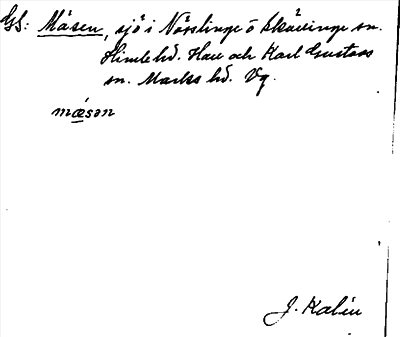 GS: Måsen, sjö i Nösslinge o Skällinge sn.
Himle hd. Hall och Karl Gustavs
sn. Marks hd. Vg.
mǽsən
J. Kalén